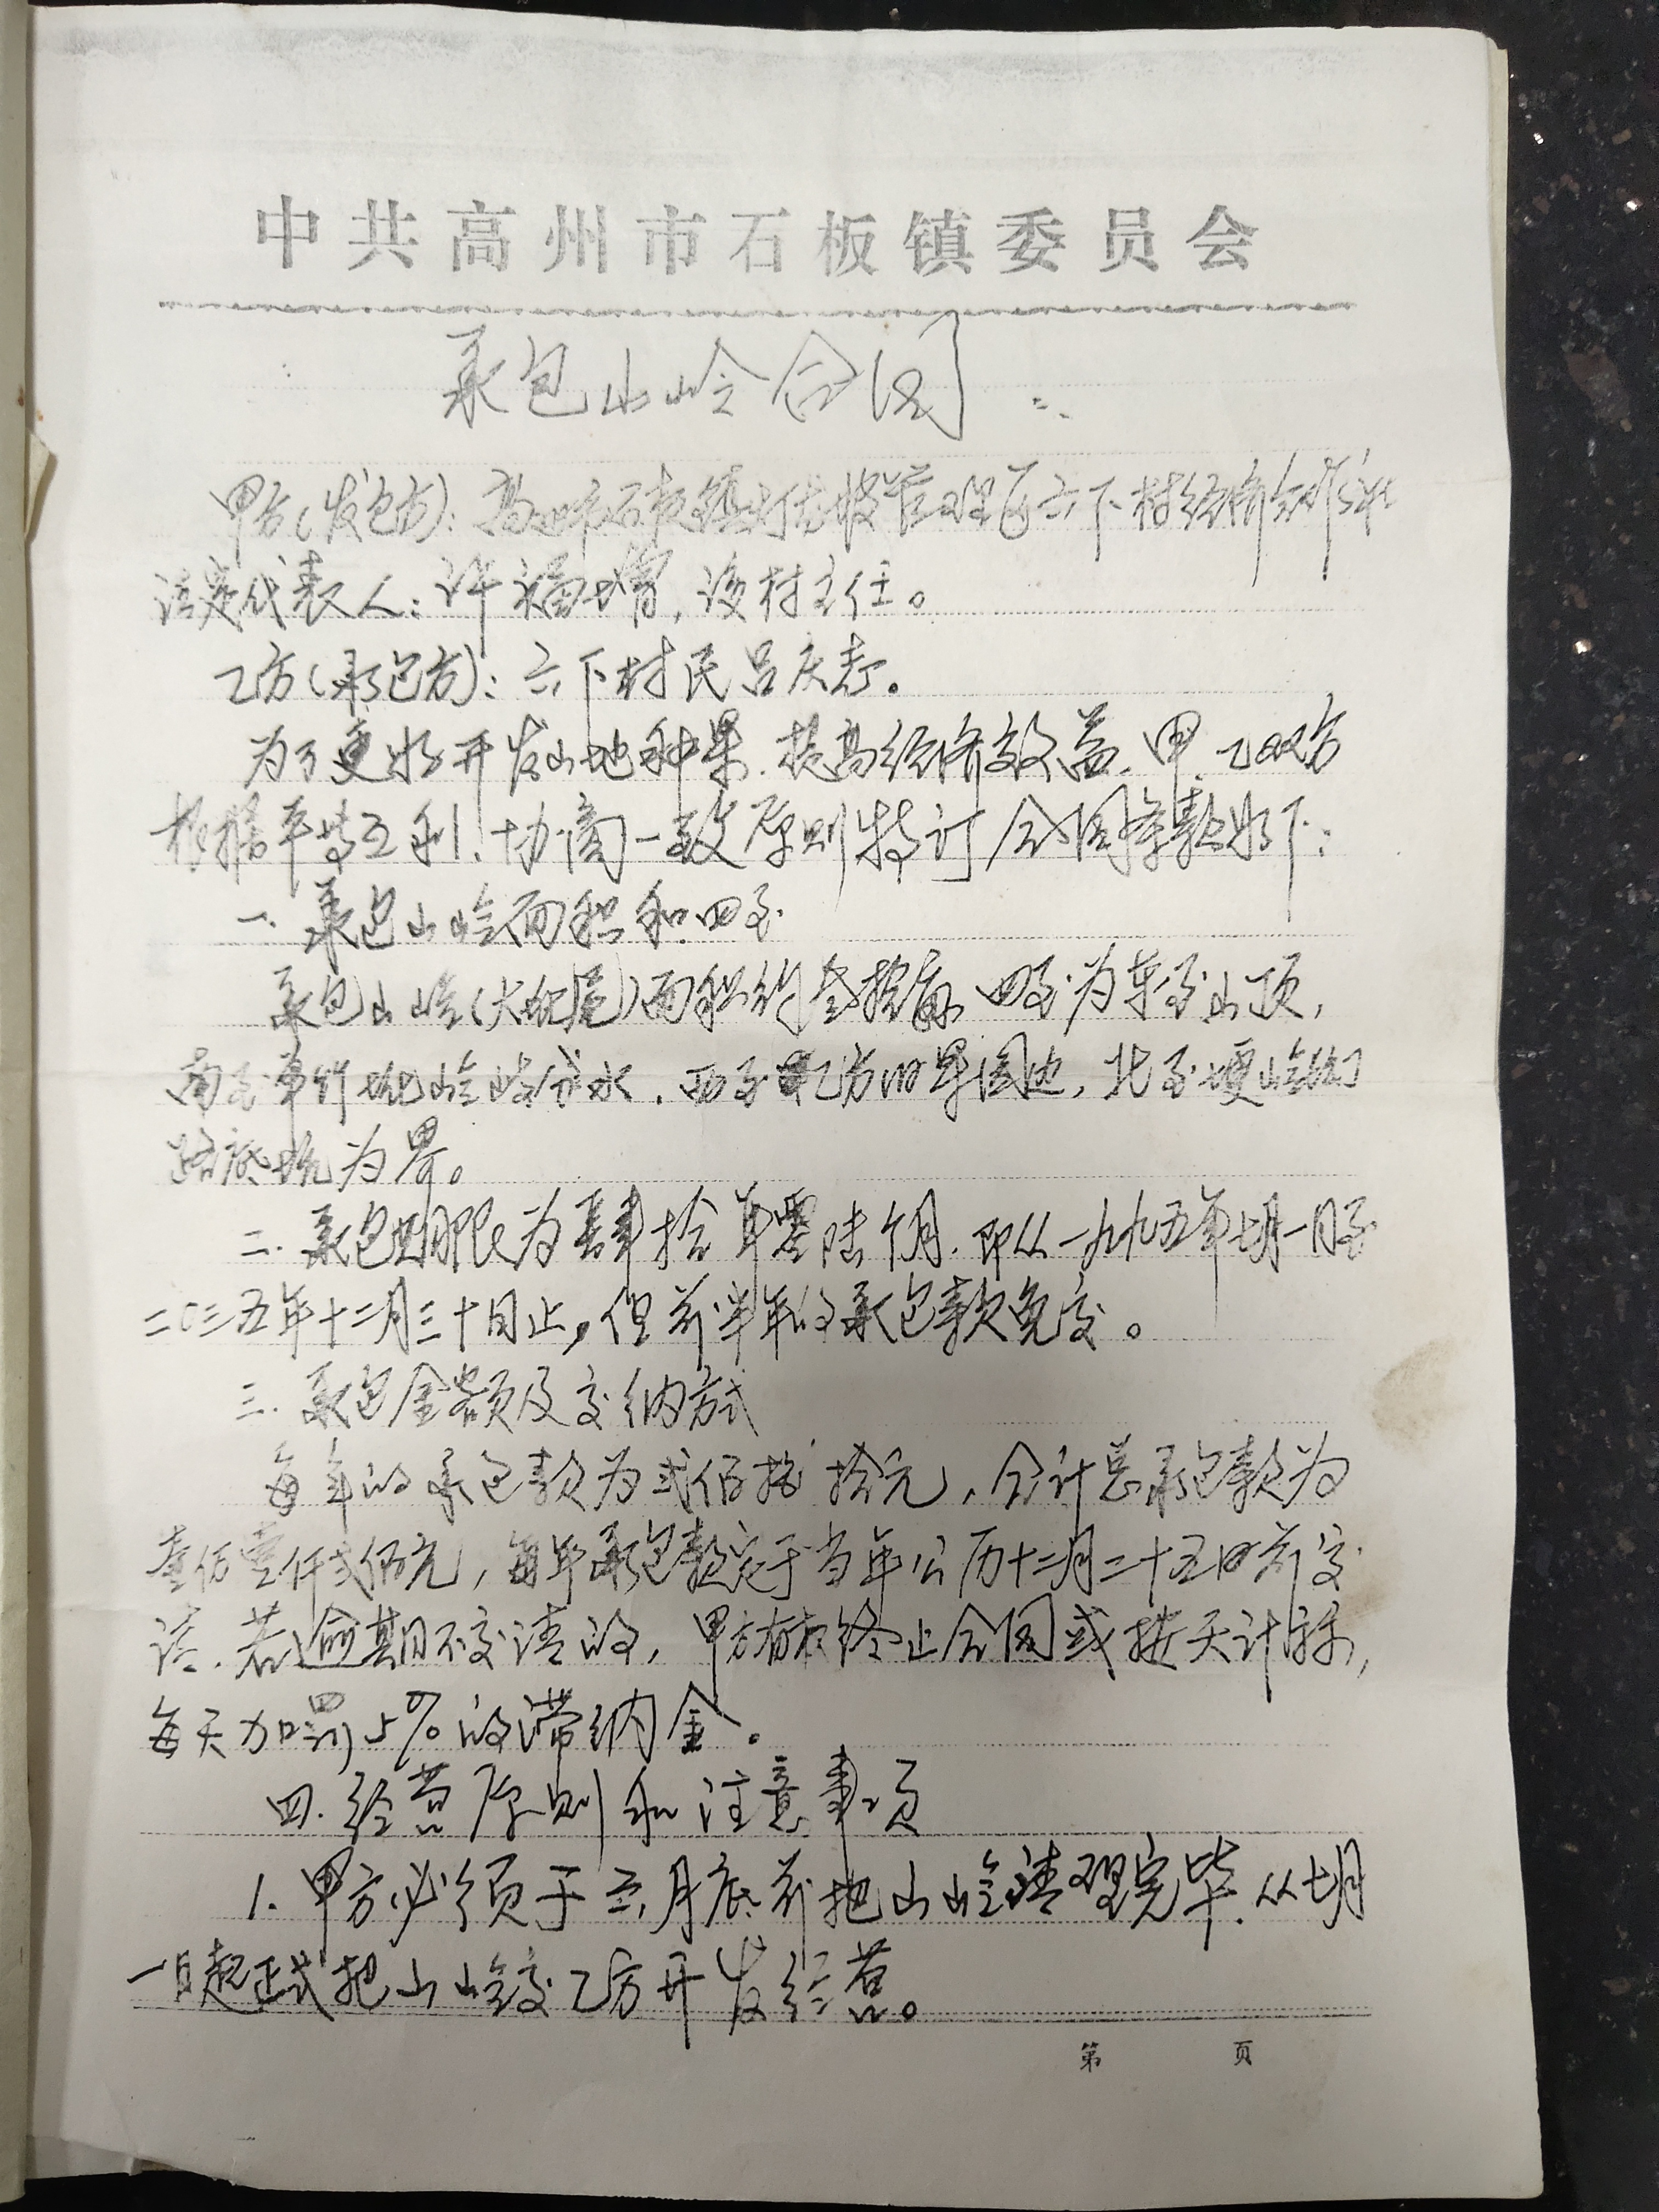 中共高州市石板镇委员会
承包山岭合同
甲方(发包方): 高州市石板镇 管理区六下村经济合作社
法定代表人: 许福增, 该村主任。
乙方(承包方): 六下村民吕庆寿。
为了更好开发山地种果. 提高经济效益. 甲. 乙双方
根据平等互利. 协商一致原则特订合同条款如下:
一. 承包山岭面积和四至
承包山岭( )面积约 拾亩. 四至为东至山顶,
南至 岭 分水. 西至 乙方的果园边, 北至
路底 为界。
二. 承包期限为肆拾年零陆个月. 即从一九九五年七月一日至
二〇三五年十二月三十日止, 但前半年的承包款免交。
三. 承包金额及交纳方式
每年的承包款为弍佰 拾元, 合计总承包款为
壹仟弍佰元, 每年承包款定于当年公历十二月二十五日前交
清. 若逾期不交清的, 甲方有权终止合同或按天计算,
每天加罚5%的滞纳金。
四. 经营原则和注意事项
1. 甲方必须于六月底前把山岭清理完毕. 从七月
一日起正式把山岭交乙方开发经营。
第 页